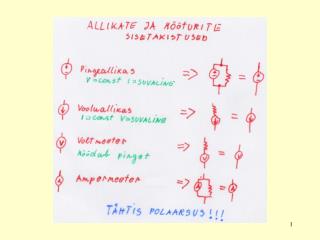 ALLIKATE JA MÕÕTURITE
SISETAKISTUSED
Pingeallikas
V=const I=SUVALINE
=> =
Voolvallikas
I=const V=SUVALINE
=> =
Voltmeeter
Mõõdab pinget
=> =
Ampermeeter
=> =
TÄHTIS POLAARSUS!!!
1